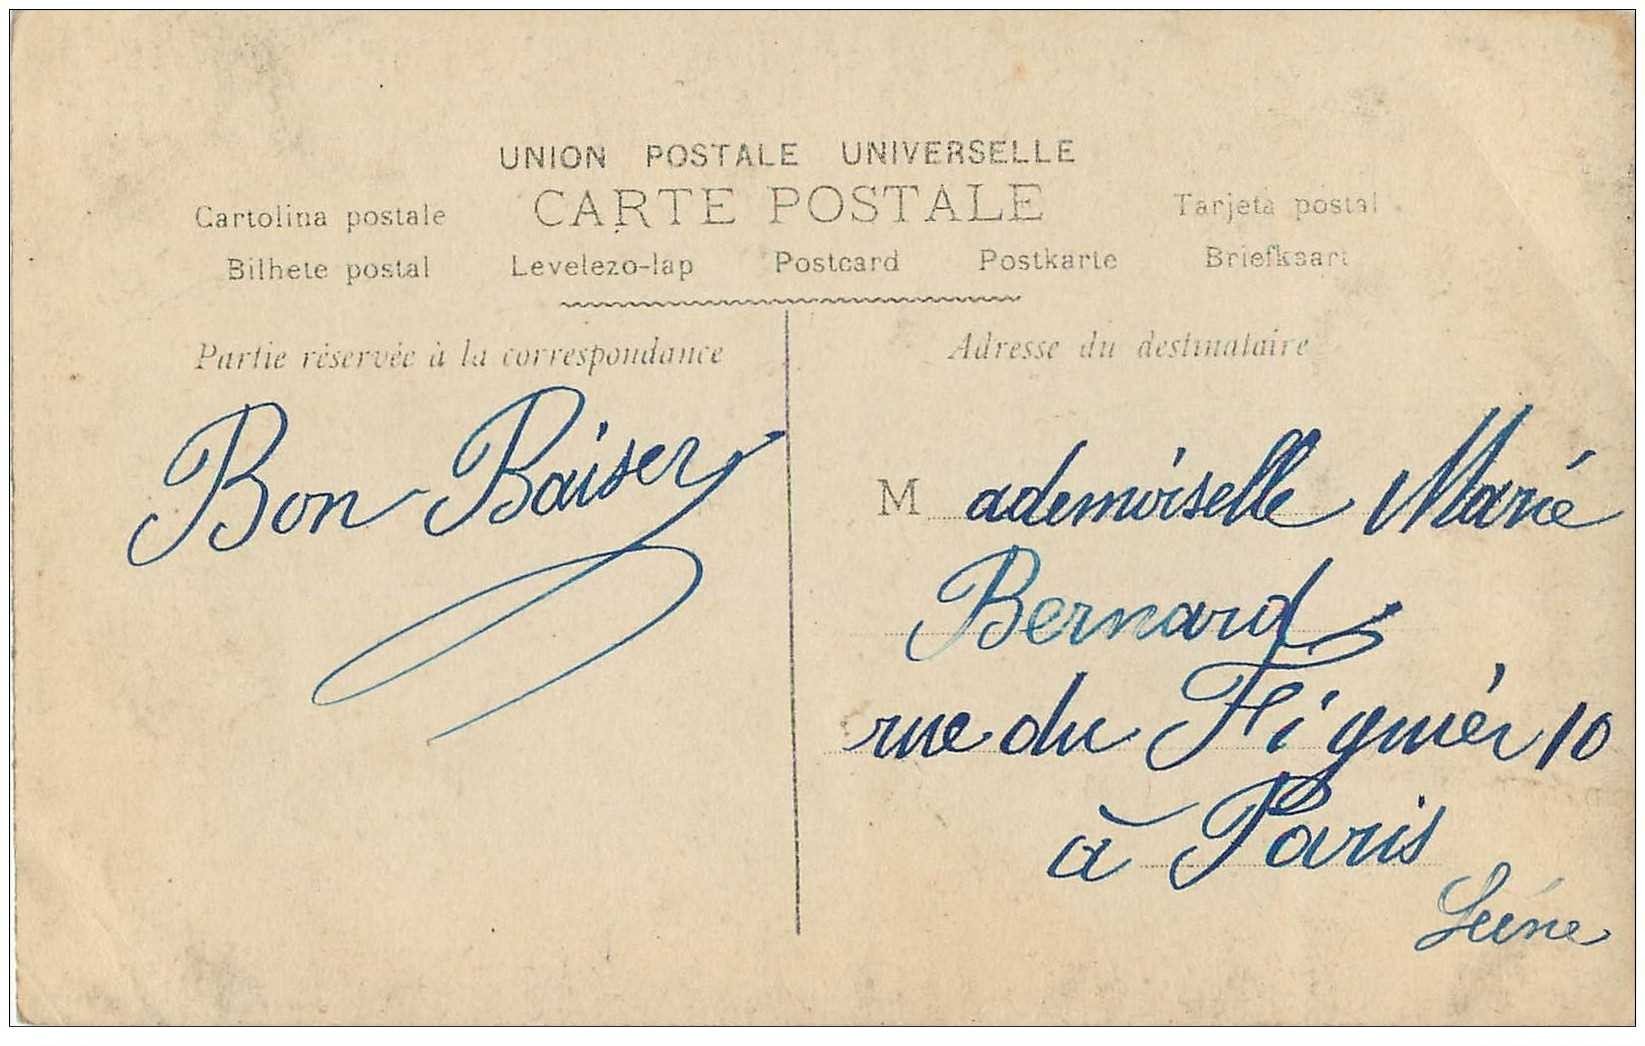 UNION POSTALE UNIVERSELLE
CARTE POSTALE
Cartolina postale Tarjeta postal
Bilhete postal Levelezo-lap Postcard Postkarte Briefkaart
Partie réservée à la correspondance
Bon Baiser
Adresse du destinataire
Mademoiselle Marie
Bernard
rue du Figuier 10
à Paris
Seine